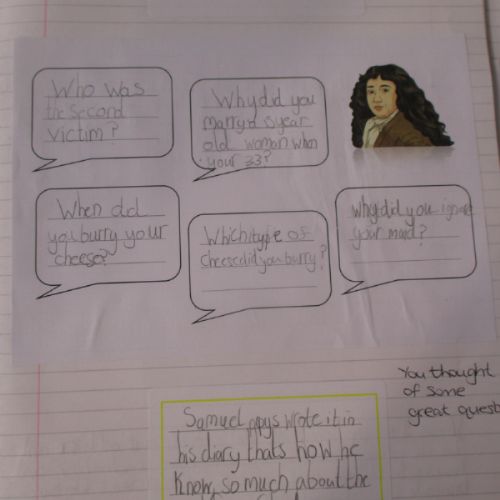 Who was
the second
victim?
Why did you
marry a 15 year
old woman when
your 23?
When did
you burry your
cheese?
Which type of
cheese did you burry?
why did you ignore
your maid?
You thought
of some
great quest
Samuel pepys wrote it in
his diary thats how he
know, so much about the